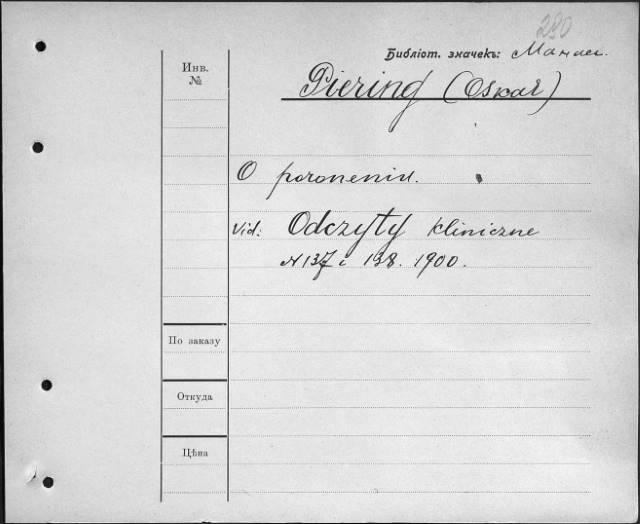 280
Библіот. значекъ:
Инв. №
Piering (Oskar)
O poronieniu.
Vid: Odczyty kliniczne
N 137 i 138. 1900.
По заказу
Откуда
Цѣна